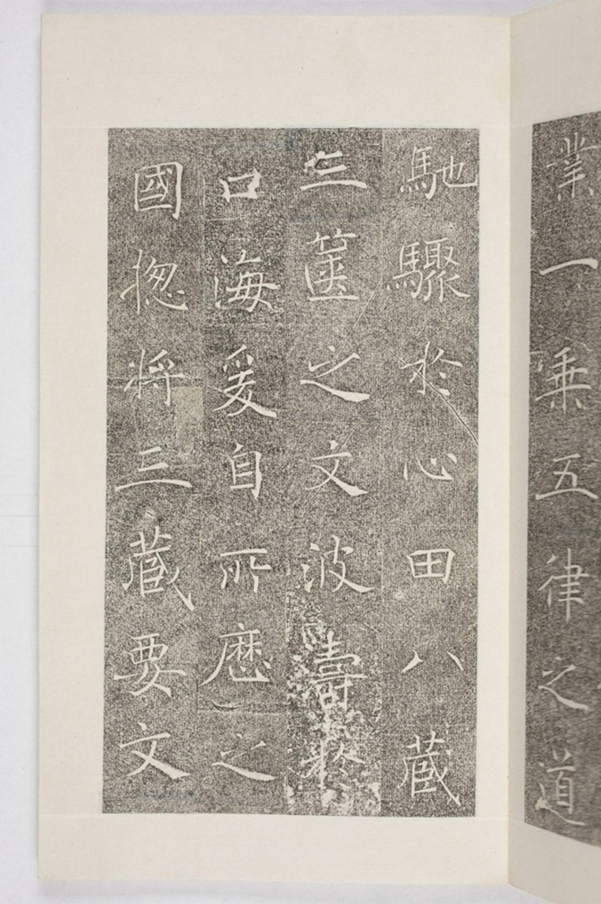 業一乗五律之道
馳驟於心田八藏
三篋之文波濤於
口海爰自所歷之
國揔將三藏要文